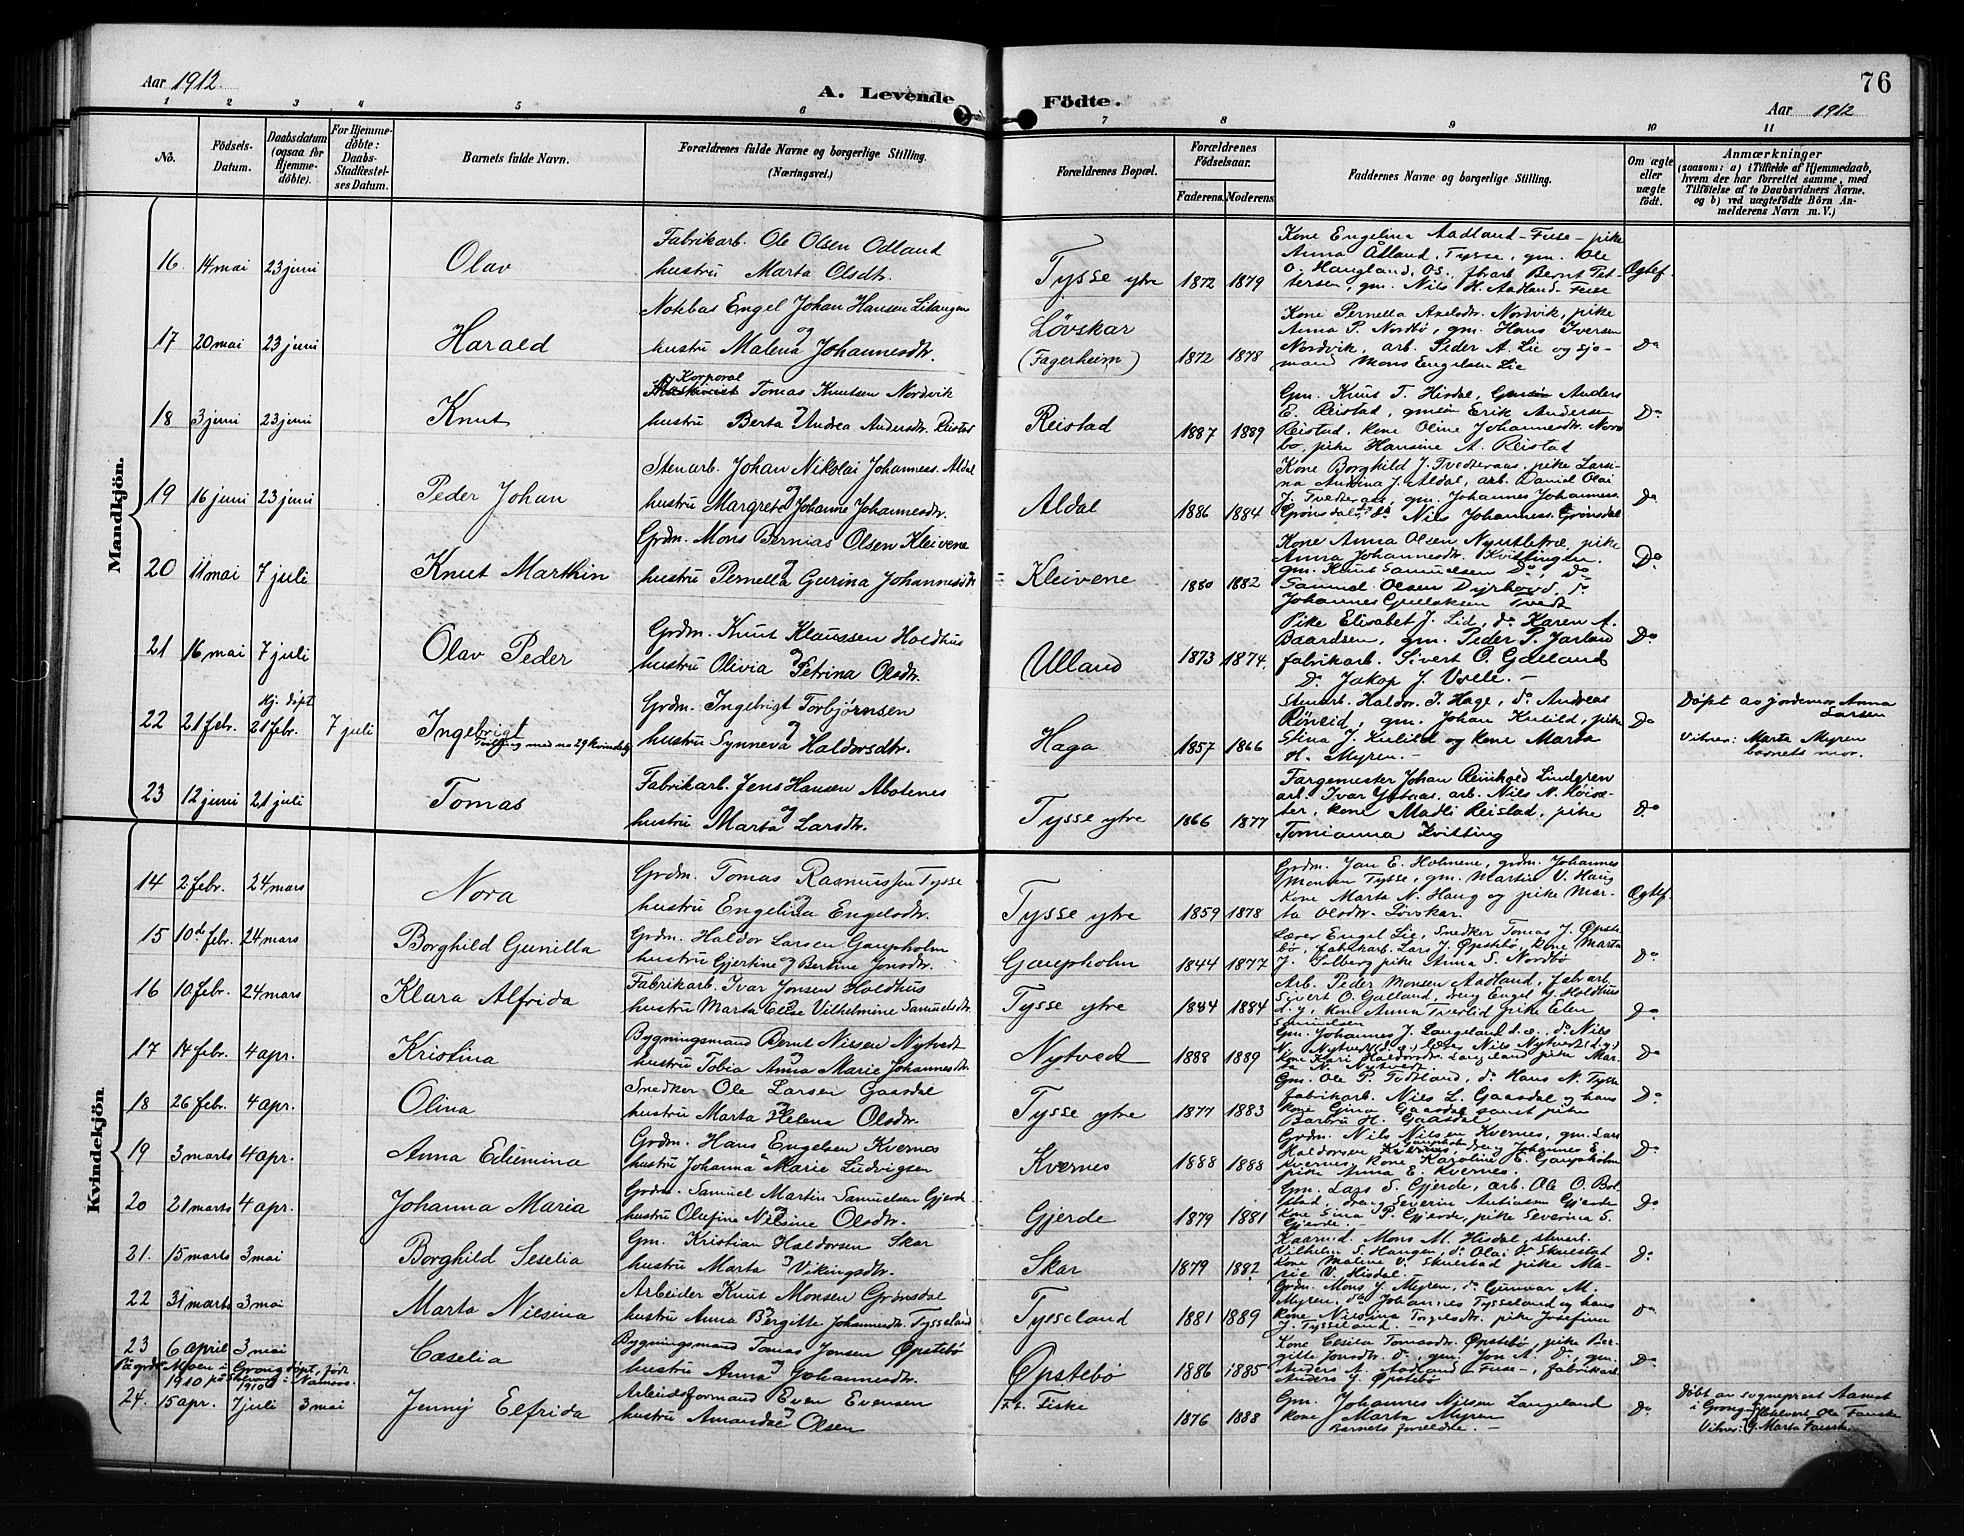 Aar 1912. A. Levende Födte. 76
Aar 1912
1 2 3 4 5 6 7 8 9 10 11
No.
Födsels-Datum.
Daabsdatum (ogsaa for Hjemmedöbte).
For Hjemmedöbte: Daabs-Stadfæstelses Datum.
Barnets fulde Navn.
Forældrenes fulde Navne og borgerlige Stilling. (Næringsvei.)
Forældrenes Bopæl.
Forældrenes Födselsaar.
Faderens. Moderens.
Faddernes Navne og borgerlige Stilling.
Om ægte eller uægte födt.
Anmærkninger
(saasom: a) i Tilfælde af Hjemmedaab, hvem der har forrettet samme, med Tilföielse af to Daabsvidners Navne, og b) ved uægtefödte Börn Anmelderens Navn m. V.)
Mandkjön.
16. 14 mai 23 juni Olav
Fabrikarb. Ole Olsen Odland
hustru Marta Olsdtr.
Tysse ytre 1872 1879
Kone Engelina Aadland-Fuse- pike
Anna Åland, Tysse, gm. Ole
O. Haugland, Os, fbrarb. Bernt Pettersen, gm. Nils H. Aadland-Fuse
Øgtef.
17 20 mai 23 juni Harald
Notebas Engel Johan Hansen
og
hustru Malena Johannesdtr.
Løvskar (Fagerheim) 1872 1878
Kone Pernella Axelsdtr. Nordvik, pike
Anna P. Nordbø, gm. Hans Iversen
Nordvik, arb. Peder A. Lie og sjømand Mons Engelsen Lie
Do
18 3 juni 23 juni Knut
Korporal Tomas Knutsen Nordvik
hustru Berta Andrea Andersdtr. Reistad
Reistad 1887 1889
Gm. Knut T. Hisdal, Anders
E. Reistad, gmsön Erik Andersen
Reistad, kone Oline Johannesdtr. Nordbo, pike Hansine A. Reistad
Do
19 16 juni 23 juni Peder Johan
Stenarb. Johan Nikolai Johanness. Aldal
hustru Margrete Johanne Johannesdtr.
Aldal 1886 1884
Kone Borghild J. Tvedteraas, pike Larsina J. Aldal, arb. Daniel Olai
J. Tvedteraas, gm. Johannes Johanness.
Grønsdal, do Nils Johanness. Grønsdal
Do
20 11 mai 7 juli Knut Marthin
Grdm. Mons Bernias Olsen Kleivene
hustru Pernella Gurina Johannesdtr
Kleivene 1880 1882
Kone Anna Olsen pike
Anna Johannesdtr. Kvittingen,
gm. Knut Samuelsen Do, do
Samuel Olsen Dyrhovd, d.
Johannes Gulleksen Tvedt
Do
21 16 mai 7 juli Olav Peder
Grdm. Knut Klaussen Holdhus
hustru Olivia Petrina Olsdtr.
Ulland 1873 1874.
Pike Elisabet J. Lid, do Karen A.
Baardsen, gm. Peder P. Jarland
fabrikarb. Sivert O. Galland
Do Jakop J. -
Do
hj. döpt
22 21 febr. 21 febr. 7 juli Ingebrigt
Tvilling med no 29 kvindekj.
Grdm. Ingebrigt Torbjørnsen
hustru Synneva Haldorsdtr.
Haga 1857 1866
Stenarb. Haldor I. Hage, do Andreas
gm. Johan Kulild, pike
Stina J. Kulild og kone Marta
H. Myren.
Do
Döpt av jordemor Anna Larsen
Vitner: Marta Myren
barnets mor.
23 12 juni 21 juli Tomas
Fabrikarb. Jens Hansen Abotenes
hustru Marta Larsdtr.
Tysse ytre 1866 1877
Fargemester Johan Reinhold Lindgren
arb. Ivar arb. Nils N. Høisæter, kone Madli Reistad, pike
Tomianna Kvitting
Do
Kvindekjön
14 2 febr. 24 mars Nora
Grdm. Tomas Rasmussen Tysse
hustru Engelina Engelsdtr.
Tysse ytre 1859 1878
Grdm. Jan E. Holmene, grdm. Johannes
Monsen Tysse, gm. Martin V. Haug
Kone Marta N. Haug og pike Marta Olsdtr. Løvskar.
Øgtef.
15 10de febr. 24 mars Borghild Gunilla
Grdm. Haldor Larsen Gaupholm
hustru Gjertine Bertine Jonsdtr.
Gaupholm 1844 1877
Lærer Engel Lie, Snedker Tomas J. Øpstebø, fabrikarb. Lars J. Øpstebø, kone Marta
J. Solberg, pike Anna S. Nordbø
Do
16 10 febr. 24 mars Klara Alfrida
Fabrikarb. Ivar Jonsen Holdhus
hustru Marta Else Vilhelmine Samuelsdtr.
Tysse ytre 1884 1884
Arb. Peder Monsen Aadland, fabarb.
Sivert O. Galland, dreng Engel J. Holdhus
d.y., kone Anna Tverlid pike Elen
Samuelsen
Do
17 14 febr. 4 apr. Kristina
Bygningsmand Bernt Nilsen Nytvedt
hustru Tobia Anna Marie Johannesdtr.
Nytvedt 1888 1889
Gm. Johannes J. Langeland d.e., do Nils
N. Nytvedt (d.e.) Nils Nytvedt (d.y)
Kone Kari Haldorsdtr. Langeland pike Marta N. Nytvedt.
Do
18 26 febr. 4 apr. Olina
Snedker Ole Larsen Gaasdal
hustru Marta Helena Olsdtr.
Tysse ytre 1877 1883
Gm. Ole P. Todtland, do Hans N. Tysse
fabrikarb. Nils L. Gaasdal og hans
kone Gina Gaasdal samt pike
Barbru H. Gaasdal
Do
19 3 marts 4 apr. Anna Ediemina
Grdm. Hans Engelsen Kvernes
hustru Johanna Marie Ludvigsen
Kvernes 1888 1888
Grdm. Nils Nilsen Kvernes, gm. Lars
Haldorsen Gaupholm, dreng Johannes E.
Kvernes, kone Karoline E. Gaupholm
pike Anna E. Kvernes.
Do
20 21 marts 4 apr. Johanna Maria
Grdm. Samuel Martin Samuelsen Gjerde
hustru Olufine Nilsine Olsdtr.
Gjerde 1879 1881
Gm. Lars S. Gjerde, arb. Ole O. Bolstad, dreng Severin Antiasen Gjerde
Kone Sina P. Gjerde, pike Severina S.
Gjerde. -
Do
21. 15 marts 3 mai Borghild Seselia
Gm. Kristian Haldorsen Skar
hustru Marta Vikingsdtr.
Skar 1879 1882
Kaarmd. Mons M. Hisdal, stenarb.
Vilhelm S. Haugen, do Olai V. Skulstad
Kone Maline V. Skulstad pike Marie V. Hisdal. -
Do
22 31 marts 3 mai Marta Nilsina
Arbeider Knut Monsen Grønsdal
hustru Anna Bergitte Johannesdtr. Tysseland
Tysseland 1881 1889
Grdm. Mons J. Myren, do Gunnar M.
Myren, do Johannes Tysseland og hans
kone Nilsina Ingelsdtr. pike Josefina
J. Tysseland.
Do
23 6 april 3 mai Cæselia
Bygningsmand Tomas Jonsen Øpstebø
hustru Anna Johannesdtr.
Øpstebø 1886 1885
Kone Cesilia Tomasdtr. Øpstebø, pike Bergitte Jonsdtr. do, gm. Jon A. do, gm.
Anders A. Aadland-Fuse-, fabrikarb.
Anders G. Øpstebø
Do
Pa grdn. Moen i Grong döpt, födt
1910 1910 i Namsos
24. 15 apr. 7 juli 3 mai Jenny Elfrida
Arbeidsformand Even Evensen
hustru Amanda Olsen
F.t. Fiske 1876 1888
Gm. Johannes Nilsen Langeland
kone Marta Myren
Barnets foreldre. -
Do
Döbt av sogneprest Aamot
i Grong.
Vitner: Ole Fauske
Marta Fauske